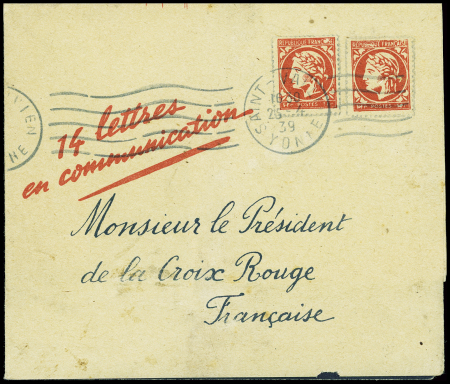 RÉPUBLIQUE FRANÇAISE
RÉPUBLIQUE FRANÇAISE
POSTES
POSTES
SAINT
39
YONNE
14 lettres
en communication
Monsieur le Président
de la Croix Rouge
Française